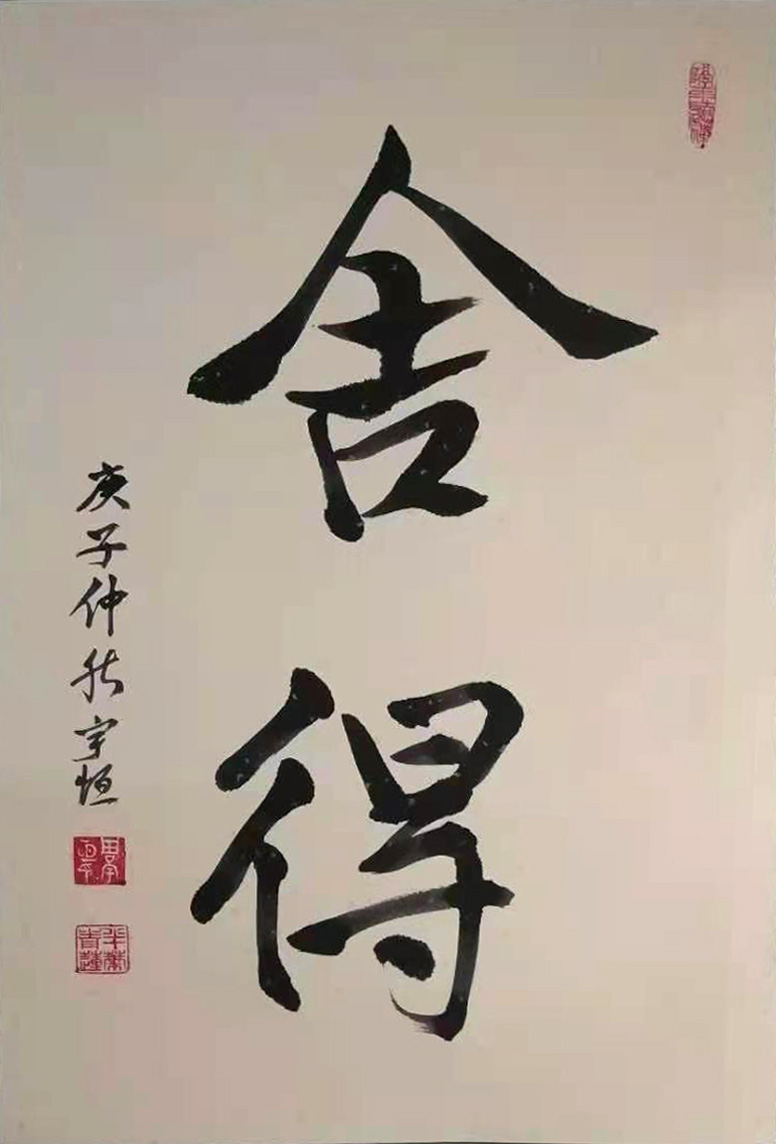 舍得
庚子仲秋宇恒